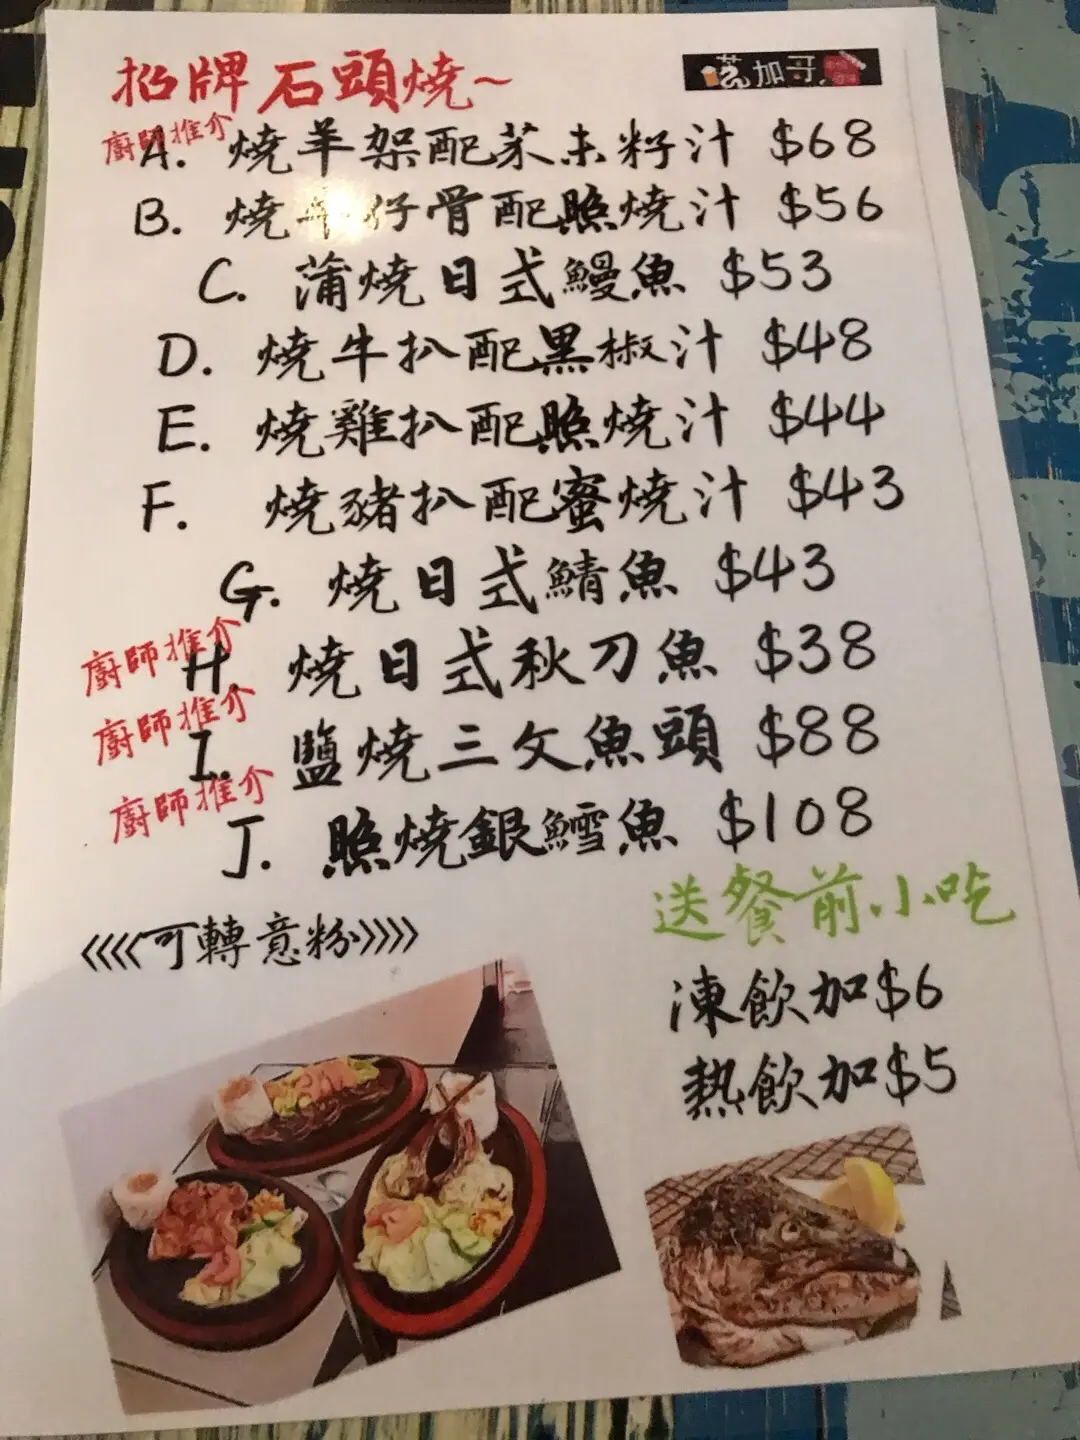 招牌石頭燒~
加哥
廚師推介
A. 燒羊架配芥末籽汁 $68
B. 燒牛仔骨配照燒汁 $56
C. 蒲燒日式鰻魚 $53
D. 燒牛扒配黑椒汁 $48
E. 燒雞扒配照燒汁 $44
F. 燒豬扒配蜜燒汁 $43
G. 燒日式鯖魚 $43
廚師推介
H. 燒日式秋刀魚 $38
廚師推介
I. 鹽燒三文魚頭 $88
廚師推介
J. 照燒銀鱈魚 $108
送餐前小吃
<<<<可轉意粉>>>>
凍飲加$6
熱飲加$5